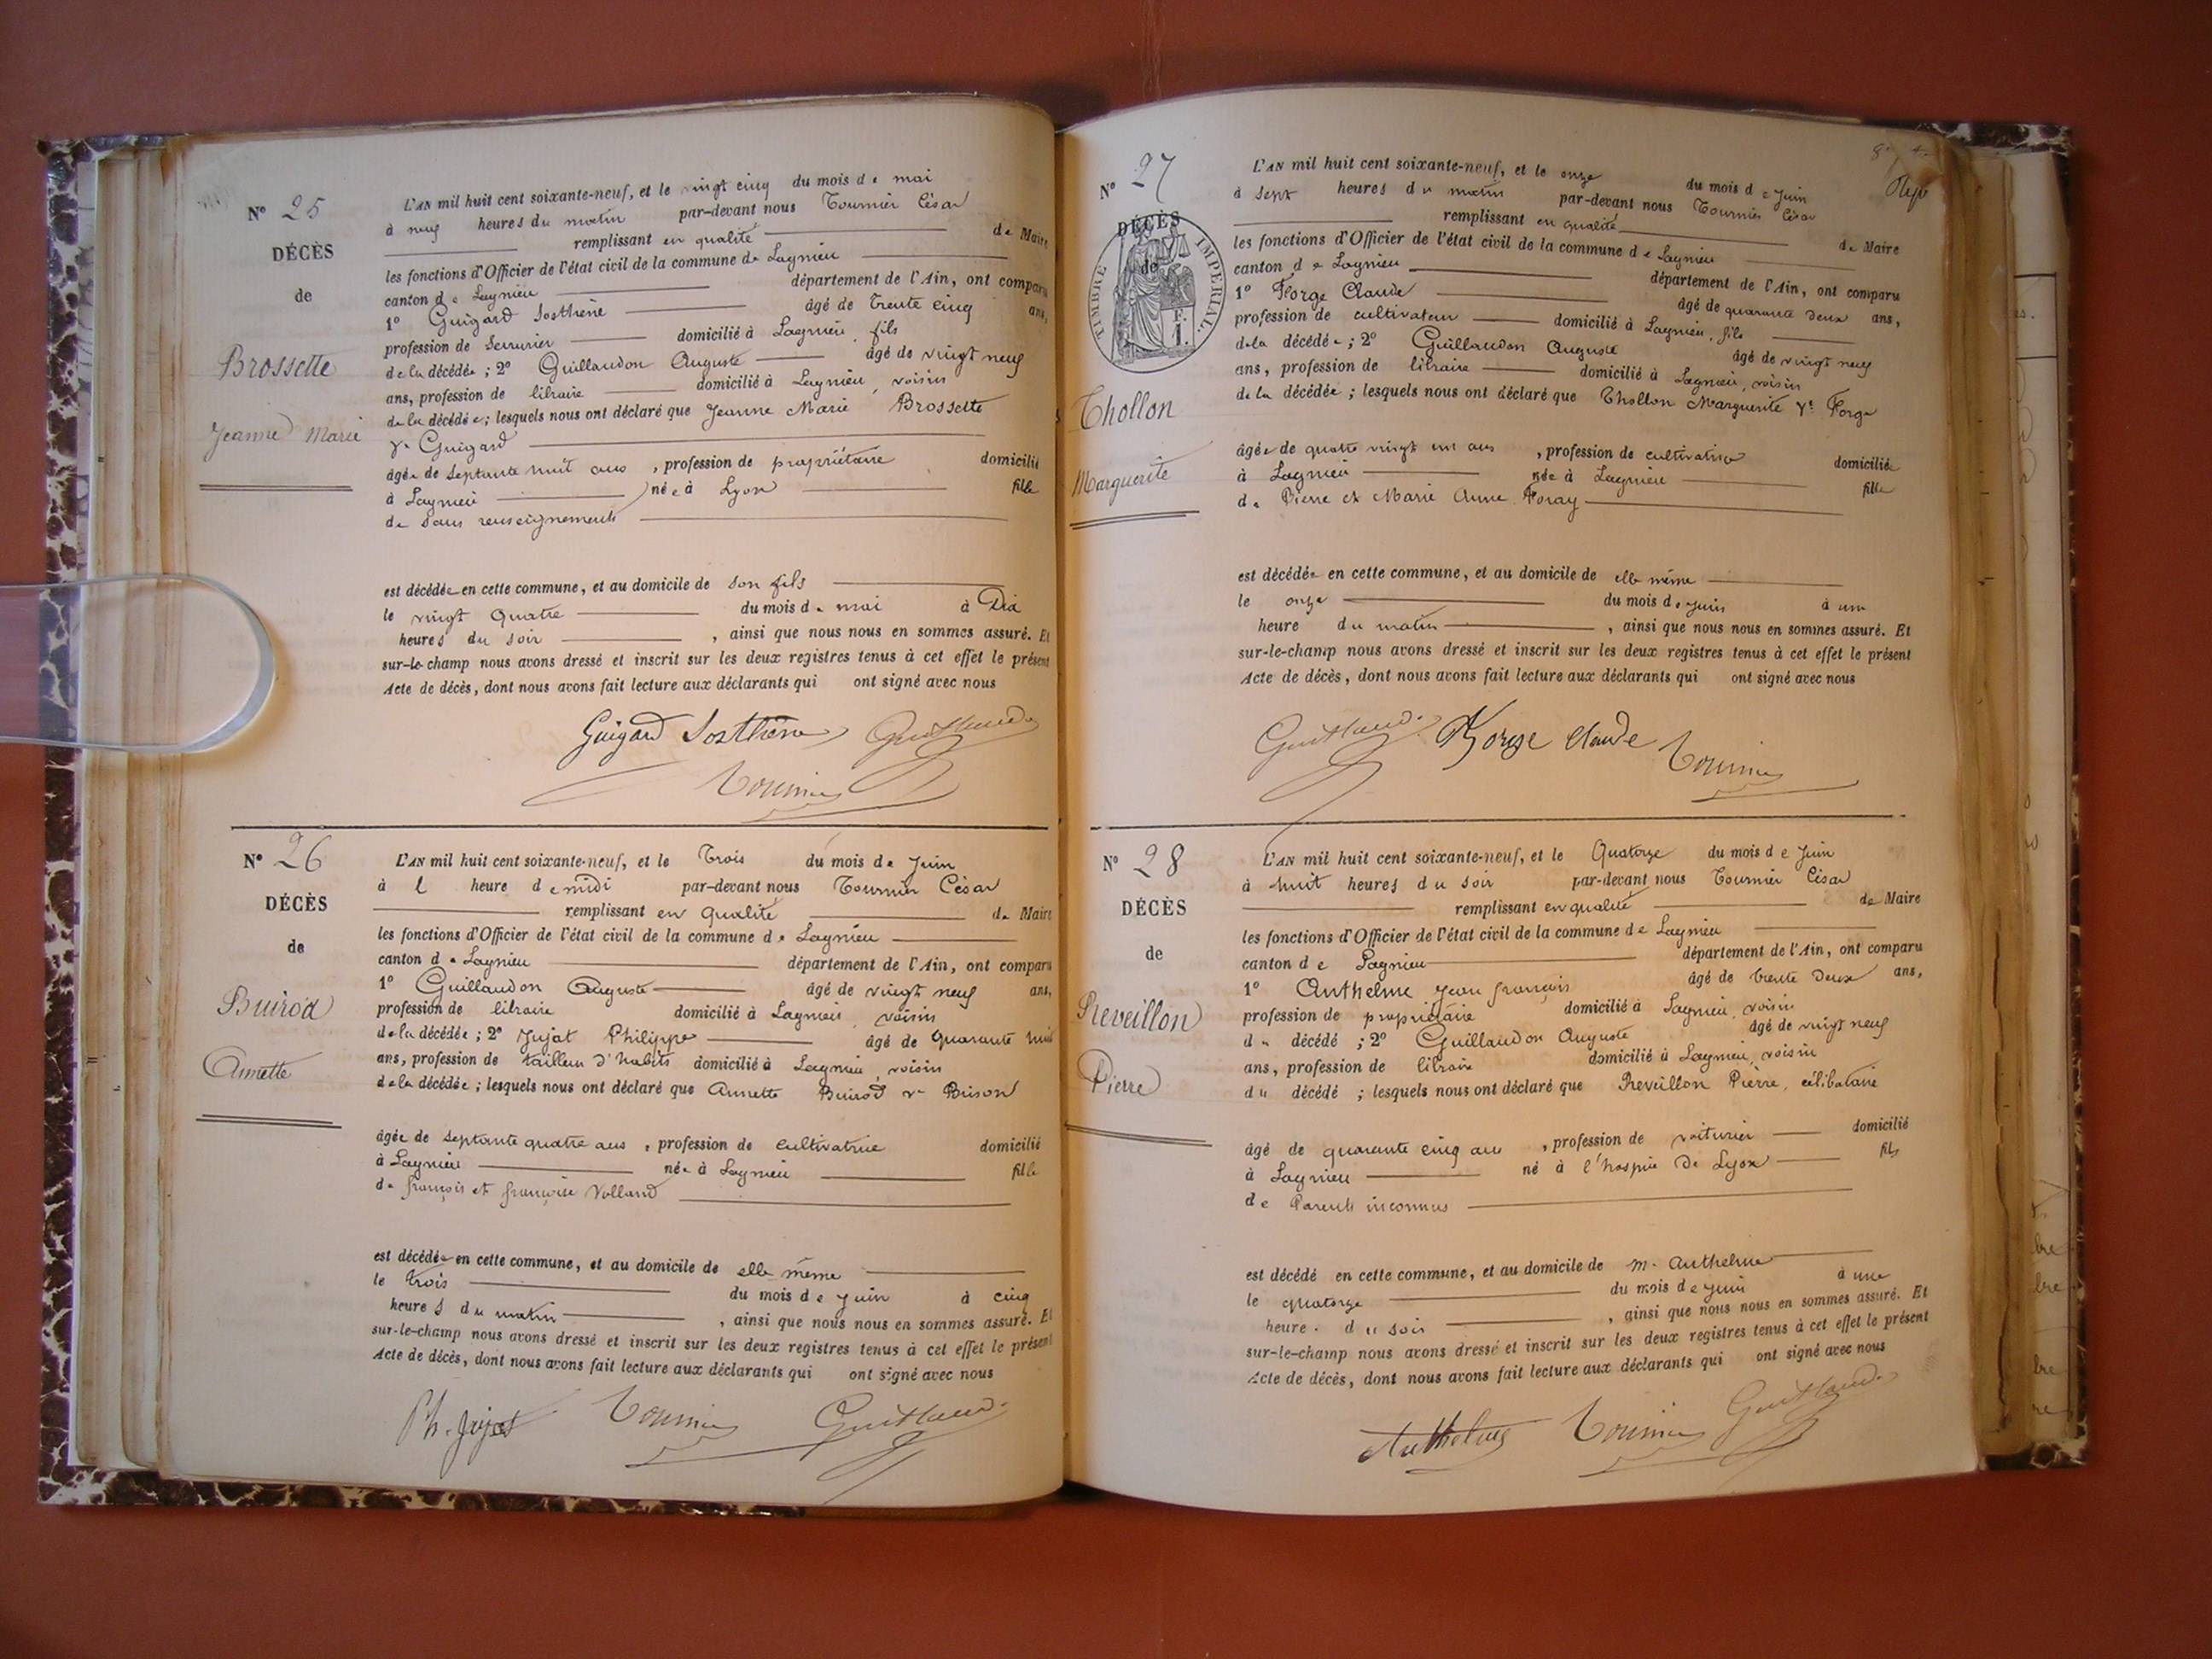 N° 25
DÉCÈS
de
Brossette
Jeanne Marie
L'AN mil huit cent soixante-neuf, et le vingt cinq du mois de mai
à neuf heures du matin par-devant nous Tournier César
remplissant en qualité de Maire
les fonctions d'Officier de l'état civil de la commune de Lagnieu
canton de Lagnieu département de l'Ain, ont comparu
1° Guigard Sosthène âgé de Trente cinq ans,
profession de Serrurier domicilié à Lagnieu, fils
de la décédée ; 2° Guillaudon Auguste âgé de vingt neuf
ans, profession de libraire domicilié à Lagnieu, voisin
de la décédée ; lesquels nous ont déclaré que Jeanne Marie Brossette
Ve Guigard
âgée de Septante huit ans, profession de propriétaire domicilié
à Lagnieu née à Lyon fille
de sans renseignements
est décédée en cette commune, et au domicile de son fils
le vingt quatre du mois de mai à Dix
heures du soir, ainsi que nous nous en sommes assuré. Et
sur-le-champ nous avons dressé et inscrit sur les deux registres tenus à cet effet le présent
Acte de décès, dont nous avons fait lecture aux déclarants qui ont signé avec nous
Guigard Sosthène Guillaud
Tournier
N° 26
DÉCÈS
de
Buirod
Annette
L'AN mil huit cent soixante-neuf, et le Trois du mois de Juin
à l heure de midi par-devant nous Tournier César
remplissant en qualité de Maire
les fonctions d'Officier de l'état civil de la commune de Lagnieu
canton de Lagnieu département de l'Ain, ont comparu
1° Guillaudon Auguste âgé de vingt neuf ans,
profession de libraire domicilié à Lagnieu, voisin
de la décédée ; 2° Jujat Philippe âgé de Quarante huit
ans, profession de tailleur d'habits domicilié à Lagnieu, voisin
de la décédée ; lesquels nous ont déclaré que Annette Buirod ve Brison
âgée de Septante quatre ans, profession de cultivatrice domicilié
à Lagnieu née à Lagnieu fille
de françois et françoise Volland
est décédée en cette commune, et au domicile de elle même
le trois du mois de Juin à cinq
heures du matin, ainsi que nous nous en sommes assuré. Et
sur-le-champ nous avons dressé et inscrit sur les deux registres tenus à cet effet le présent
Acte de décès, dont nous avons fait lecture aux déclarants qui ont signé avec nous
Ph. Jujat Tournier Guillaud
N° 27
DÉCÈS
de
TIMBRE IMPERIAL
F.
1.
Thollon
Marguerite
L'AN mil huit cent soixante-neuf, et le onze du mois de Juin
à sept heures du matin par-devant nous Tournier César
remplissant en qualité de Maire
les fonctions d'Officier de l'état civil de la commune de Lagnieu
canton de Lagnieu département de l'Ain, ont comparu
1° Forge Claude âgé de quarante deux ans,
profession de cultivateur domicilié à Lagnieu, fils
de la décédée ; 2° Guillaudon Auguste âgé de vingt neuf
ans, profession de libraire domicilié à Lagnieu, voisin
de la décédée ; lesquels nous ont déclaré que Thollon Marguerite Ve Forge
âgée de quatre vingt un ans, profession de cultivatrice domiciliée
à Lagnieu née à Lagnieu fille
de Pierre et Marie Anne Foray
est décédée en cette commune, et au domicile de elle même
le onze du mois de Juin à une
heure du matin, ainsi que nous nous en sommes assuré. Et
sur-le-champ nous avons dressé et inscrit sur les deux registres tenus à cet effet le présent
Acte de décès, dont nous avons fait lecture aux déclarants qui ont signé avec nous
Guillaud Forge Claude Tournier
N° 28
DÉCÈS
de
Preveillon
Pierre
L'AN mil huit cent soixante-neuf, et le Quatorze du mois de Juin
à huit heures du soir par-devant nous Tournier César
remplissant en qualité de Maire
les fonctions d'Officier de l'état civil de la commune de Lagnieu
canton de Lagnieu département de l'Ain, ont comparu
1° Anthelme Jean françois âgé de trente deux ans,
profession de propriétaire domicilié à Lagnieu, voisin
du décédé ; 2° Guillaudon Auguste âgé de vingt neuf
ans, profession de libraire domicilié à Lagnieu, voisin
du décédé ; lesquels nous ont déclaré que Preveillon Pierre, célibataire
âgé de quarante cinq ans, profession de voiturier domicilié
à Lagnieu né à l'hospice de Lyon fils
de Parents inconnus
est décédé en cette commune, et au domicile de m. Anthelme
le quatorze du mois de Juin à une
heure du soir, ainsi que nous nous en sommes assuré. Et
sur-le-champ nous avons dressé et inscrit sur les deux registres tenus à cet effet le présent
Acte de décès, dont nous avons fait lecture aux déclarants qui ont signé avec nous
Anthelme Tournier Guillaud